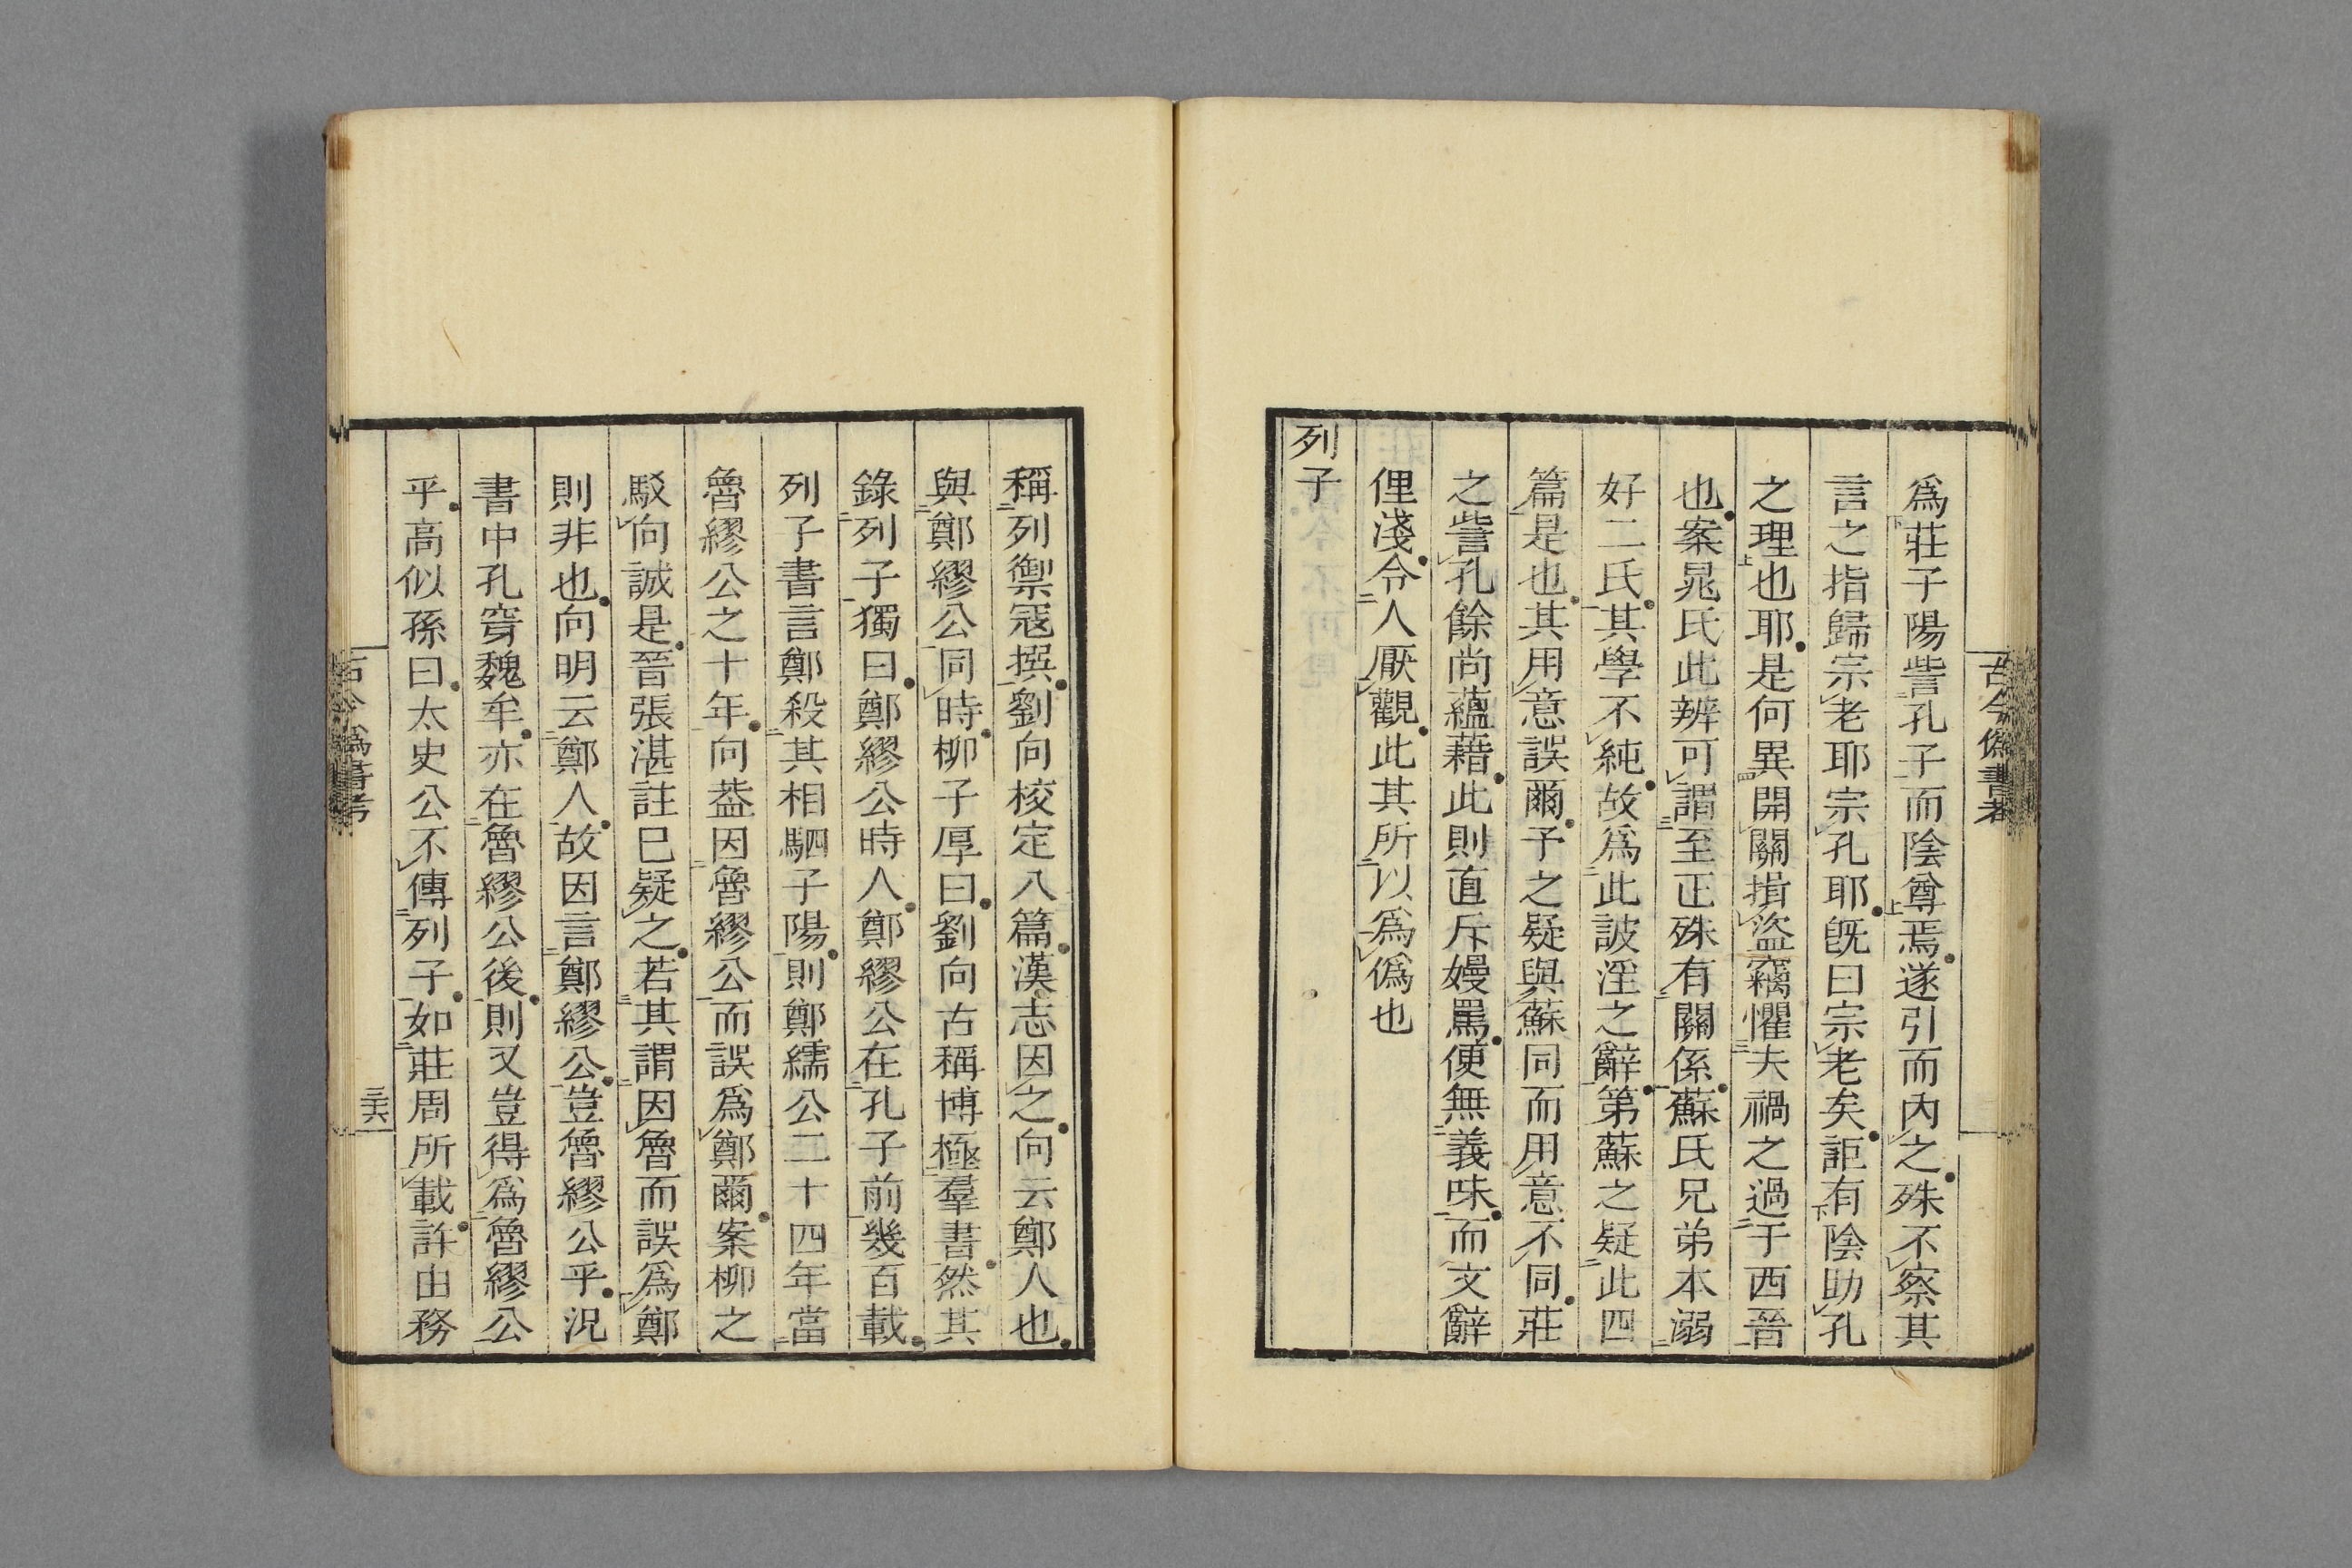 古今僞書考
爲莊子陽訾孔子而陰尊焉遂引而內之殊不察其
言之指歸宗老耶宗孔耶旣曰宗老矣詎有陰助孔
之理也耶是何異開關揖盜竊懼夫禍之過于西晉
也案晁氏此辨可謂至正殊有關係蘇氏兄弟本溺
好二氏其學不純故爲此詖淫之辭第蘇之疑此四
篇是也其用意誤爾予之疑與蘇同而用意不同莊
之訾孔餘尚蘊藉此則直斥嫚罵便無義味而文辭
俚淺令人厭觀此其所以爲僞也
列子
稱列禦寇撰劉向校定八篇漢志因之向云鄭人也
與鄭繆公同時柳子厚曰劉向古稱博極羣書然其
錄列子獨曰鄭繆公時人鄭繆公在孔子前幾百載
列子書言鄭殺其相駟子陽則鄭繻公二十四年當
魯繆公之十年向葢因魯繆公而誤爲鄭爾案柳之
駁向誠是晉張湛註巳疑之若其謂因魯而誤爲鄭
則非也向明云鄭人故因言鄭繆公豈魯繆公乎況
書中孔穿魏牟亦在魯繆公後則又豈得爲魯繆公
乎高似孫曰太史公不傳列子如莊周所載許由務
古今僞書考
三六